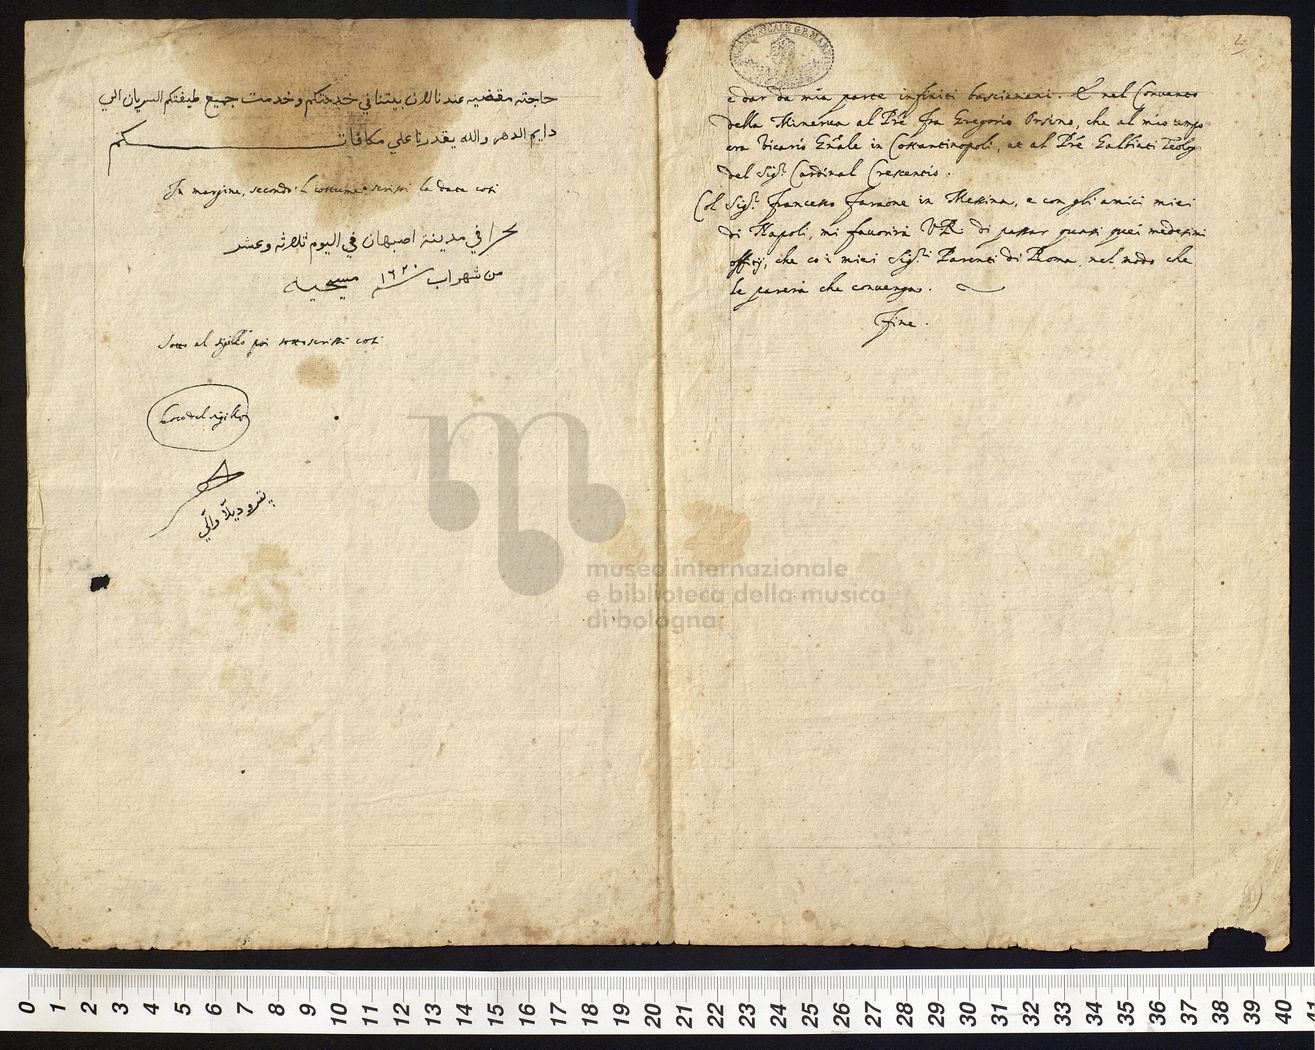 حاجته مقضيه عندنا للان بيتنا في خدمتكم وخدمت جميع طيفتكم السريان الي
دايم الدهر والله يقدرنا علي مكافاتكم
In margine, secondo 'l costume scrissi la data così
في مدينة اصبهان في اليوم ثلاثه وعشر
من شهر اب ١٦٢٠ مسيحيه
Sotto al sigillo poi sottoscrissi così
Loco del sigillo
پترو ديلّا والّي
2
e dar da mia parte infiniti basciamani. E nel Convento
della Minerva al Pre fra Gregorio Orsino, che al mio tempo
era Vicario Gnãle in Costantinopoli, et al Pre Galbiati Teolog
del Sigr Cardinal Crescentio.
Col Sigr Francesco Faraone in Messina, e con gli amici miei
di Napoli, mi favorirà VR di passar quasi quei medesimi
offitij, che co i miei Sigri Parenti di Roma, nel modo che
le parerà che convenga.
Fine.
museo internazionale
e biblioteca della musica
di bologna
0 1 2 3 4 5 6 7 8 9 10 11 12 13 14 15 16 17 18 19 20 21 22 23 24 25 26 27 28 29 30 31 32 33 34 35 36 37 38 39 40 41